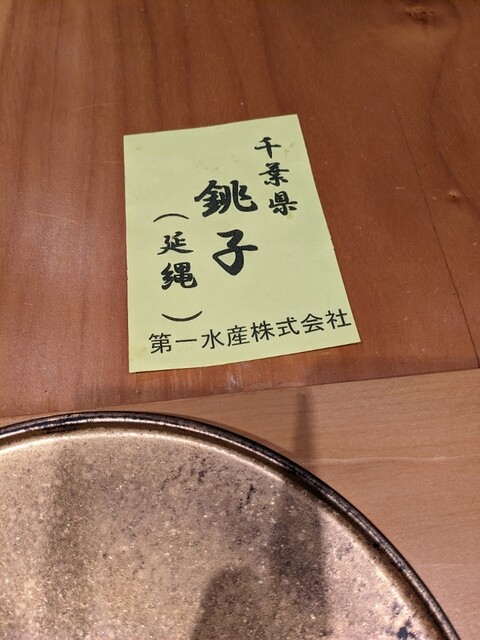 千葉県
銚子
（延縄）
第一水産株式会社